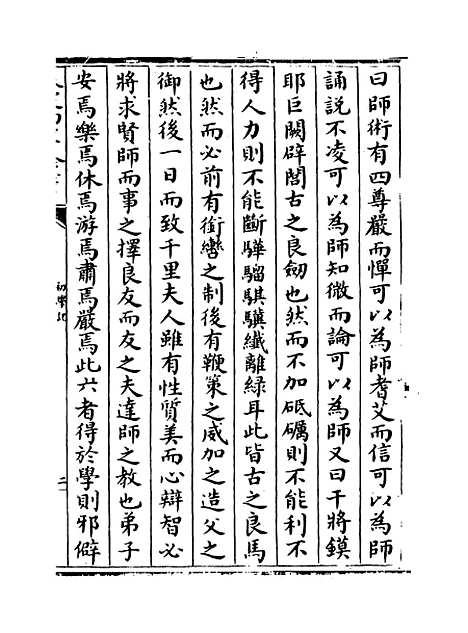 曰師術有四尊嚴而憚可以為師耆艾而信可以為師
誦説不凌可以為師知微而論可以為師又曰干將鏌
耶巨闕辟閭古之良劒也然而不加砥礪則不能利不
得人力則不能斷驊騮騏驥纎離緑耳此皆古之良馬
也然而必前有銜轡之制後有鞭策之威加之造父之
御然後一日而致千里夫人雖有性質美而心辯智必
將求賢師而事之擇良友而友之夫達師之教也弟子
安焉樂焉休焉游焉肅焉嚴焉此六者得於學則邪僻
初學記
二